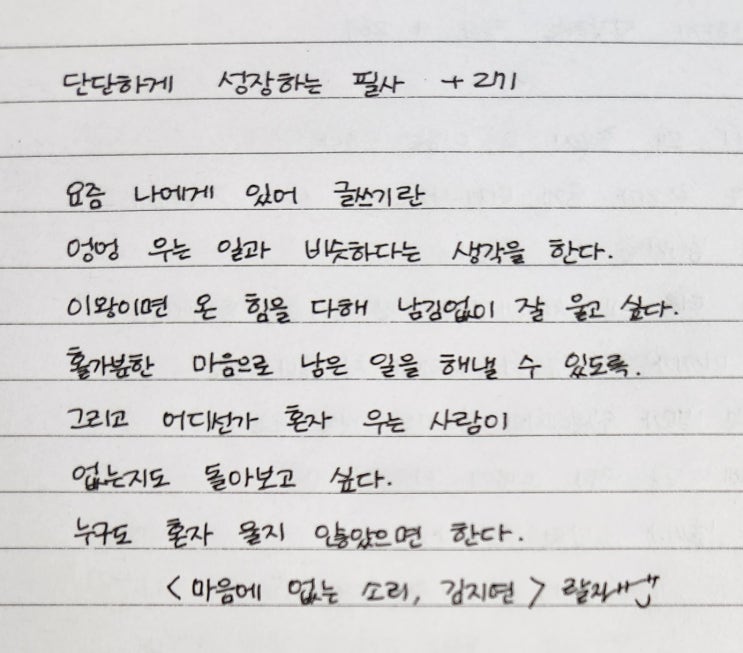 단단하게 성장하는 필사 + 2기
요즘 나에게 있어 글쓰기란
엉엉 우는 일과 비슷하다는 생각을 한다.
이왕이면 온 힘을 다해 남김없이 잘 울고 싶다.
홀가분한 마음으로 남은 일을 해낼 수 있도록.
그리고 어디선가 혼자 우는 사람이
없는지도 돌아보고 싶다.
누구도 혼자 울지 않았으면 한다.
<마음에 없는 소리, 김지연>